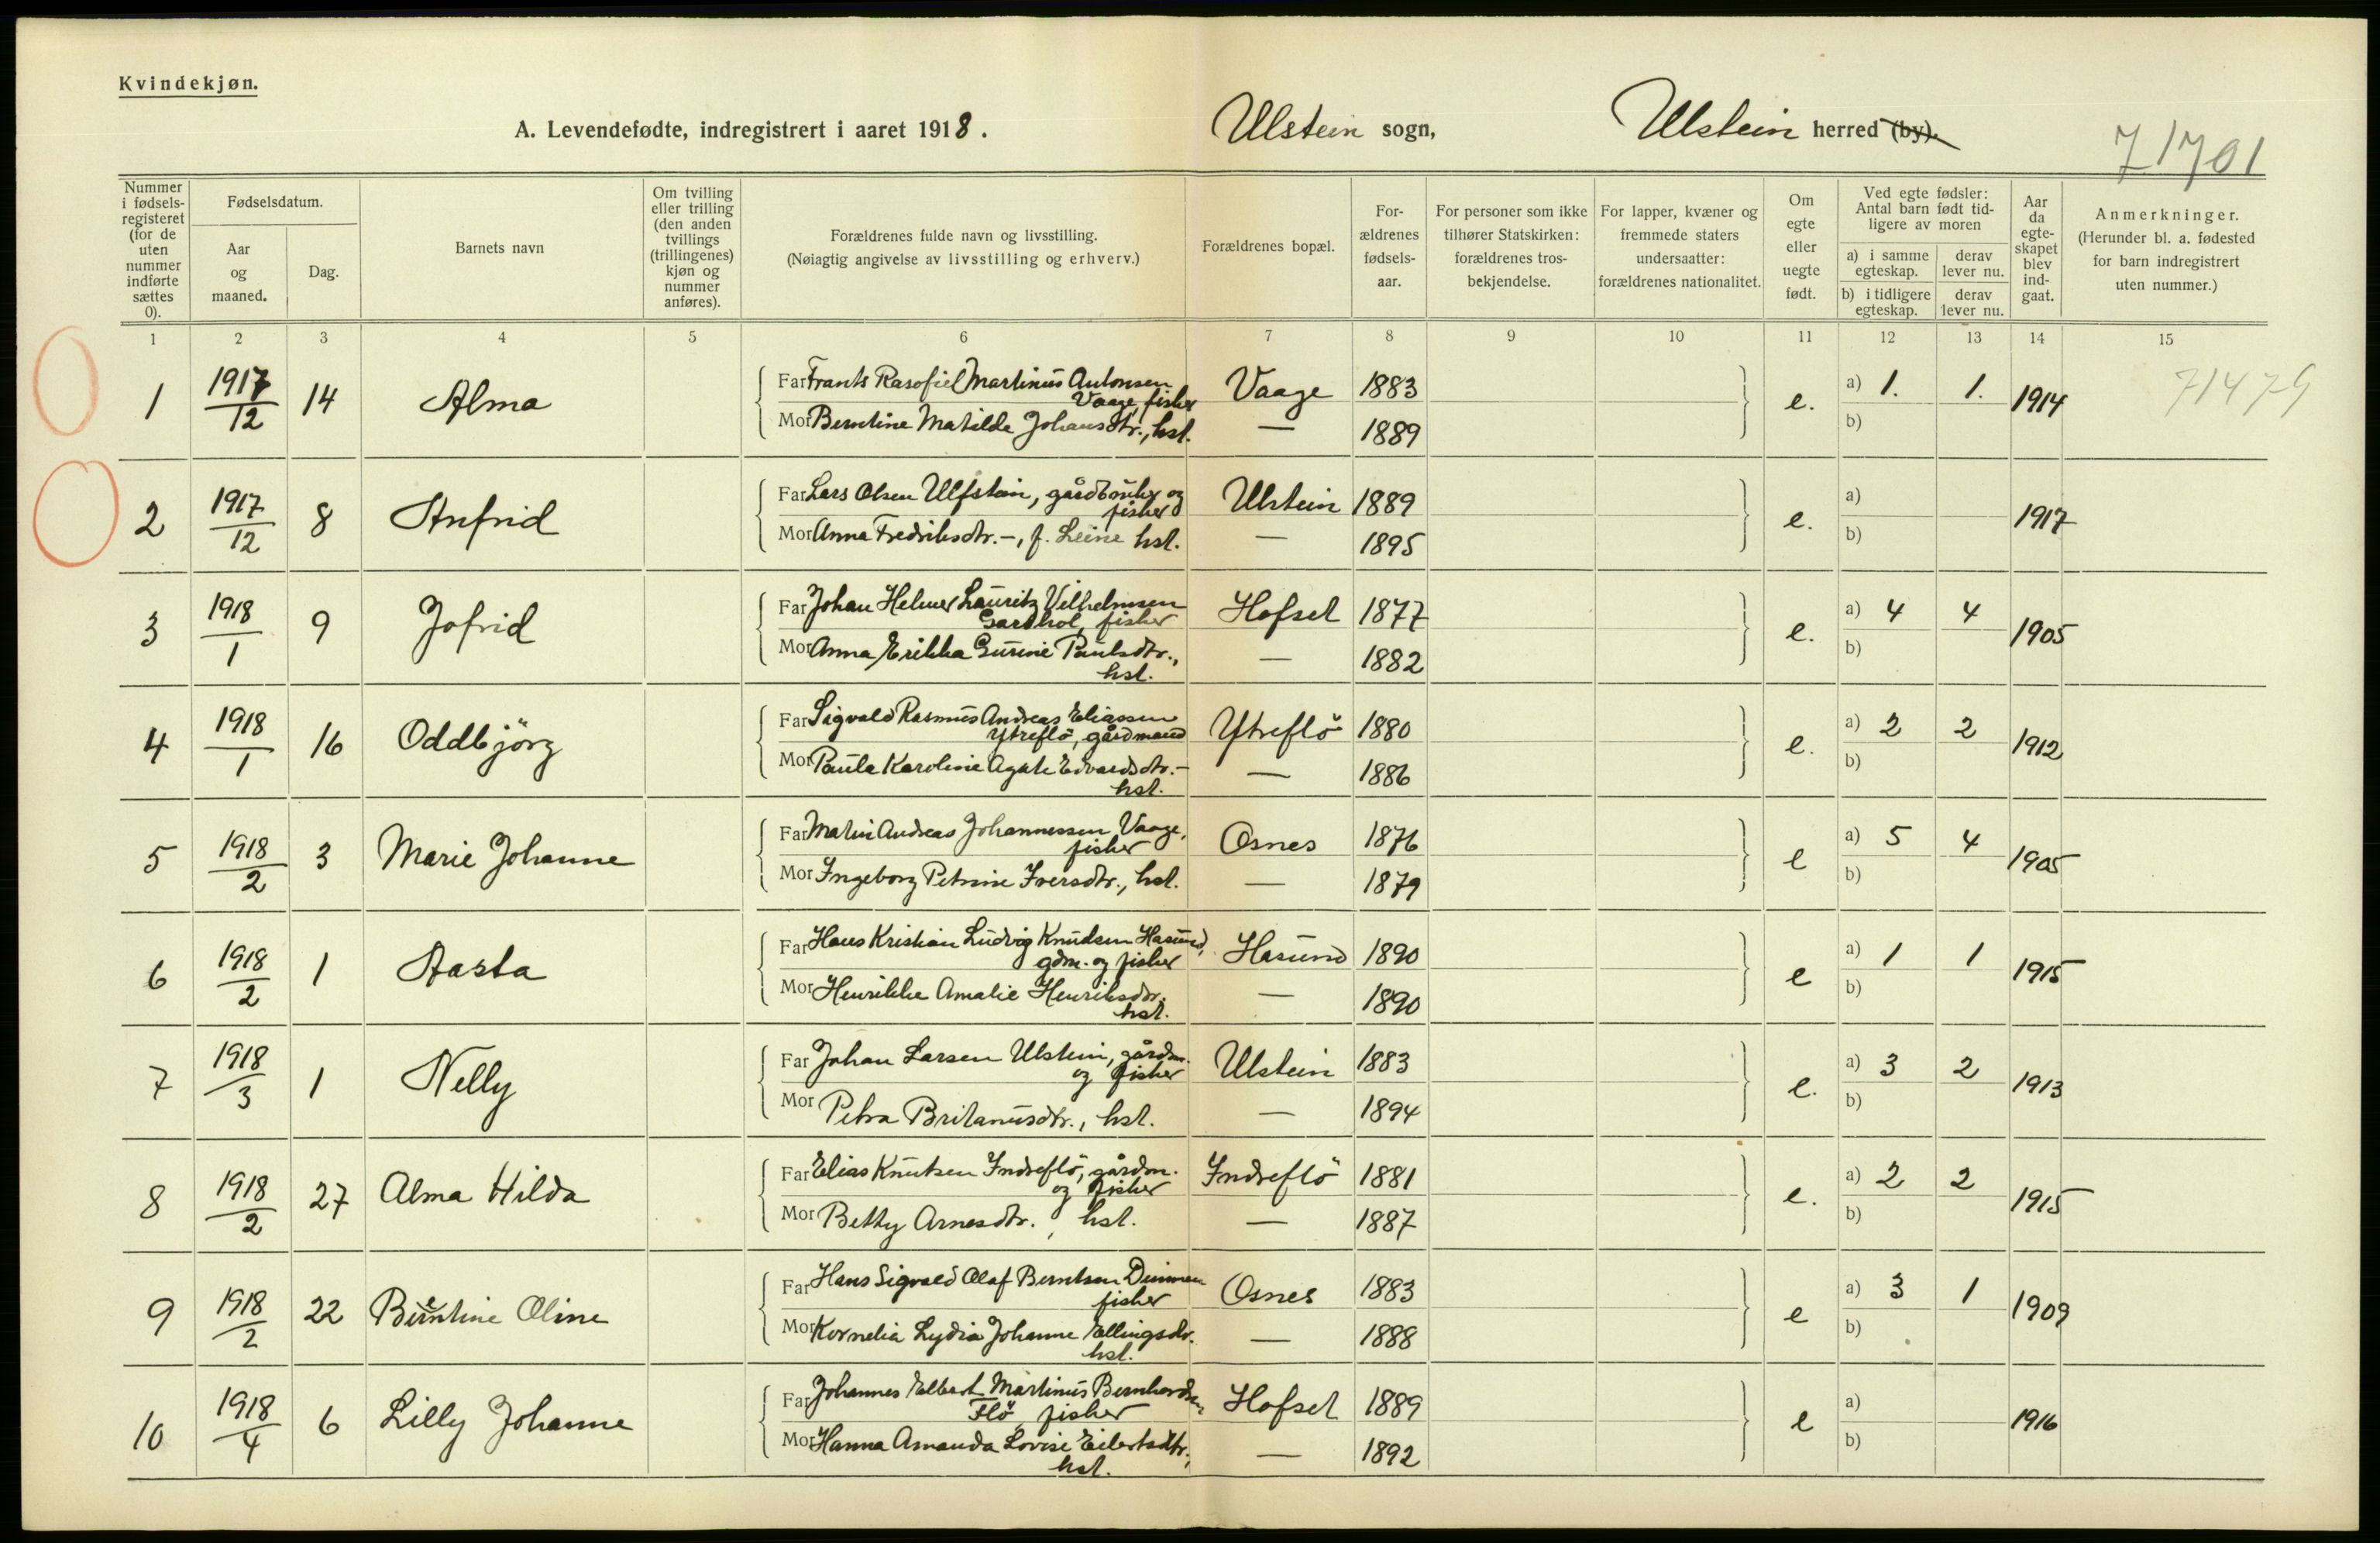 Kvindekjøn.
A. Levendefødte, indregistrert i aaret 1918. Ulstein sogn, Ulstein herred (by).
71701
Nummer i fødselsregisteret (for de uten nummer indførte sættes 0).
Fødselsdatum.
Aar og maaned.
Dag.
Barnets navn
Om tvilling eller trilling (den anden tvillings (trillingenes) kjøn og nummer anføres).
Forældrenes fulde navn og livsstilling.
(Nøiagtig angivelse av livsstilling og erhverv.)
Forældrenes bopæl.
Forældrenes fødselsaar.
For personer som ikke tilhører Statskirken: forældrenes trosbekjendelse.
For lapper, kvæner og fremmede staters undersaatter: forældrenes nationalitet.
Om egte eller uegte født.
Ved egte fødsler: Antal barn født tidligere av moren
a) i samme egteskap.
derav lever nu.
b) i tidligere egteskap.
derav lever nu.
Aar da egteskapet blev indgaat.
Anmerkninger.
(Herunder bl. a. fødested for barn indregistrert uten nummer.)
1 2 3 4 5 6 7 8 9 10 11 12 13 14 15
1 1917/12 14 Alma Far Frants Rasofiel Martinus Antonsen Vaage, fisker Vaage 1883 e. a) 1. 1. 1914 71479
Mor Berntine Matilde Johansdtr., hst. — 1889 b)
2 1917/12 8 Anfrid Far Lars Olsen Ulfstein, gårdbruker og fisker Ulstein 1889 e. a) 1917
Mor Anna Fredriksdtr. -, f. Leine hst. — 1895 b)
3 1918/1 9 Jofrid Far Johan Helmer Lauritz Vilhelmsen Gardhol, fisker Hofset 1877 e. a) 4 4 1905
Mor Anna Erikka Gurine Paulsdtr., hst. — 1882 b)
4 1918/1 16 Oddbjörg Far Sigvald Rasmus Andreas Eliassen Ytreflö, gårdmand Ytreflö 1880 e. a) 2 2 1912
Mor Paula Karoline Agate Edvardsdtr. - hst. — 1886 b)
5 1918/2 3 Marie Johanne Far Martin Andreas Johannessen Vaage, fisker Osnes 1876 e a) 5 4 1905
Mor Ingeborg Petrine Iversdtr., hst. — 1879 b)
6 1918/2 1 Aasta Far Hans Kristian Ludvig Knudsen Hasund, gdm. og fisker Hasund 1890 e a) 1 1 1915
Mor Henrikke Amalie Henriksdtr. hst. — 1890 b)
7 1918/3 1 Nelly Far Johan Larsen Ulstein, gårdm. og fisker Ulstein 1883 e. a) 3 2 1913
Mor Petra Britanusdtr., hst. — 1894 b)
8 1918/2 27 Alma Hilda Far Elias Knutsen Indreflö, gårdm. og fisker Indreflö 1881 e. a) 2 2 1915
Mor Betty Arnesdtr., hst. — 1887 b)
9 1918/2 22 Berntine Oline Far Hans Sigvald Olaf Berntsen Dimmen fisker Osnes 1883 e a) 3 1 1909
Mor Kornelia Lydia Johanne Ellingsdtr. hst. — 1888 b)
10 1918/4 6 Lilly Johanne Far Johannes Elbert Martinus Bernhardsen Flö, fisker Hofset 1889 e a) 1916
Mor Hanna Amanda Lovise Eilertsdtr., hst. — 1892 b)